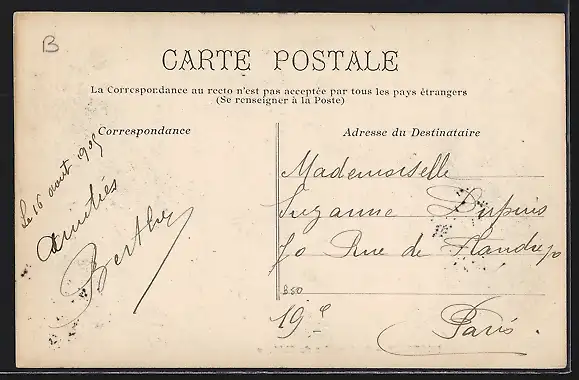 B
CARTE POSTALE
La Correspondance au recto n'est pas acceptée par tous les pays étrangers
(Se renseigner à la Poste)
Correspondance
Adresse du Destinataire
Le 16 août 905
Amitiés
Berthe
Mademoiselle
Suzanne Dupuis
70 Rue de Flandre 70
850
19e
Paris.